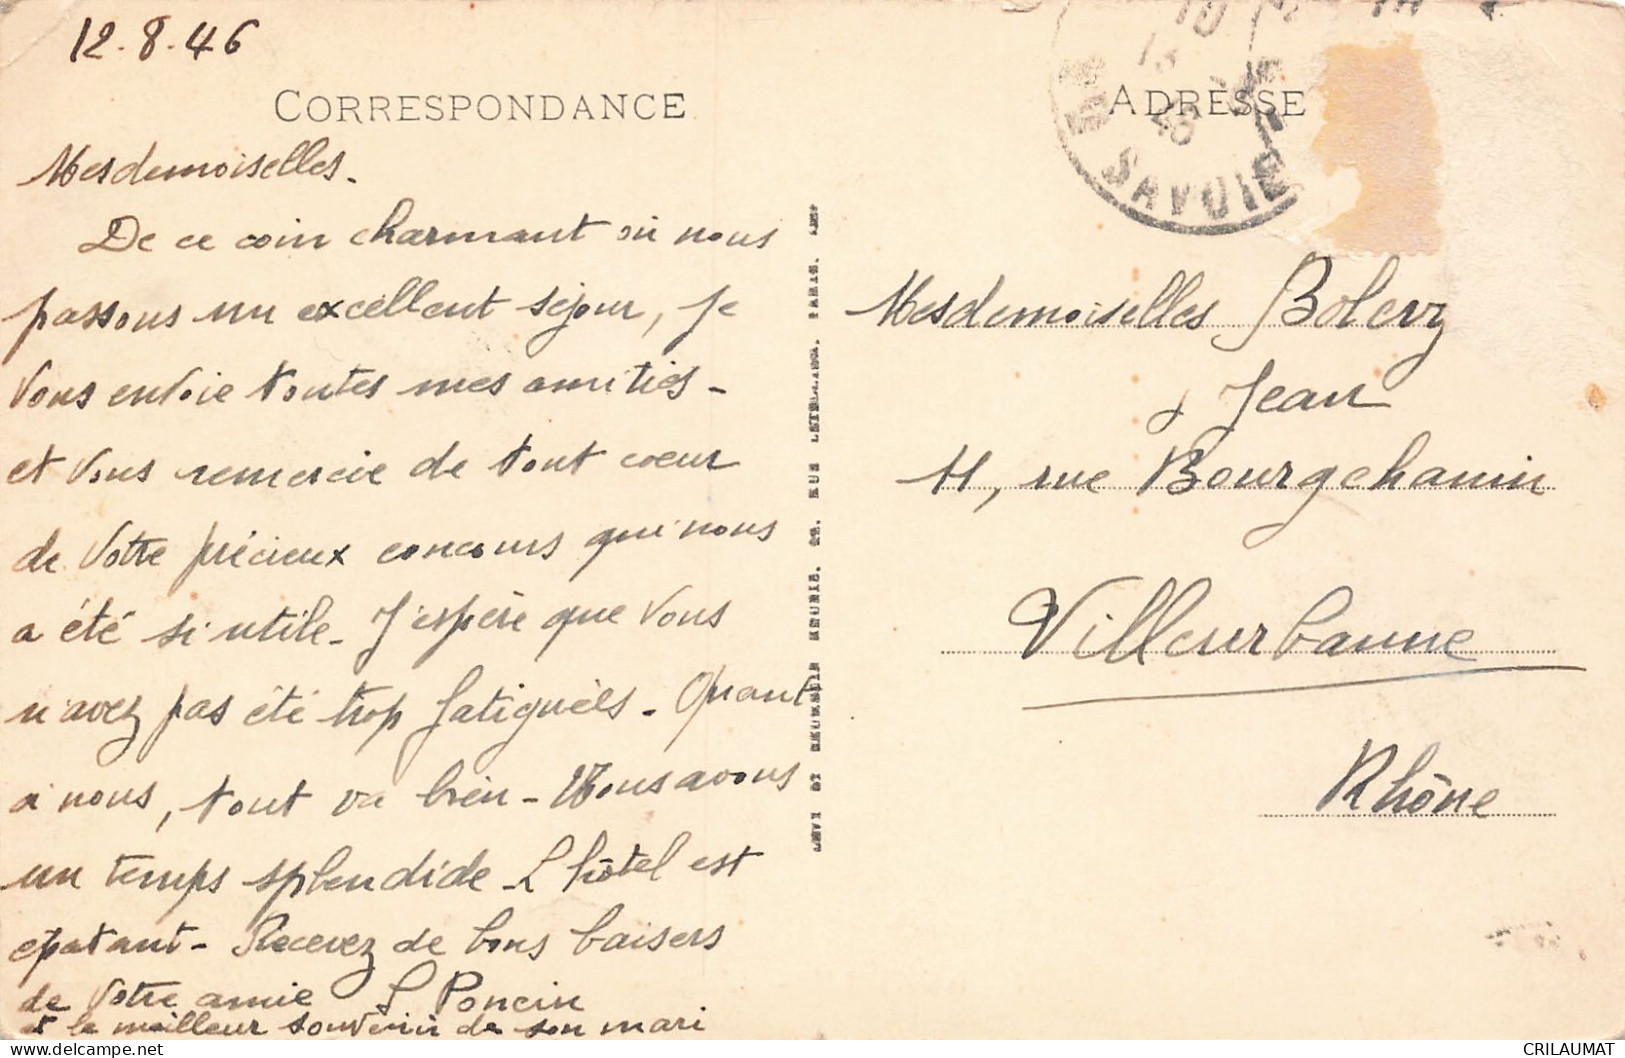 12.8.46
CORRESPONDANCE
Mesdemoiselles.
De ce coin charmant où nous
passons un excellent séjour, je
vous envoie toutes mes amitiés -
et vous remercie de tout coeur
de votre précieux concours qui nous
a été si utile - J'espère que vous
n'avez pas été trop fatiguées - Quant
à nous, tout va bien - Nous avons
un temps splendide - L'hôtel est
épatant - Recevez de bons baisers
de votre amie L Poncin
et le meilleur souvenir de son mari
ADRESSE
SAVOIE
Mesdemoiselles Bolerz
& Jean
11, rue Bourgchanin
Villeurbanne
Rhône
CRILAUMAT